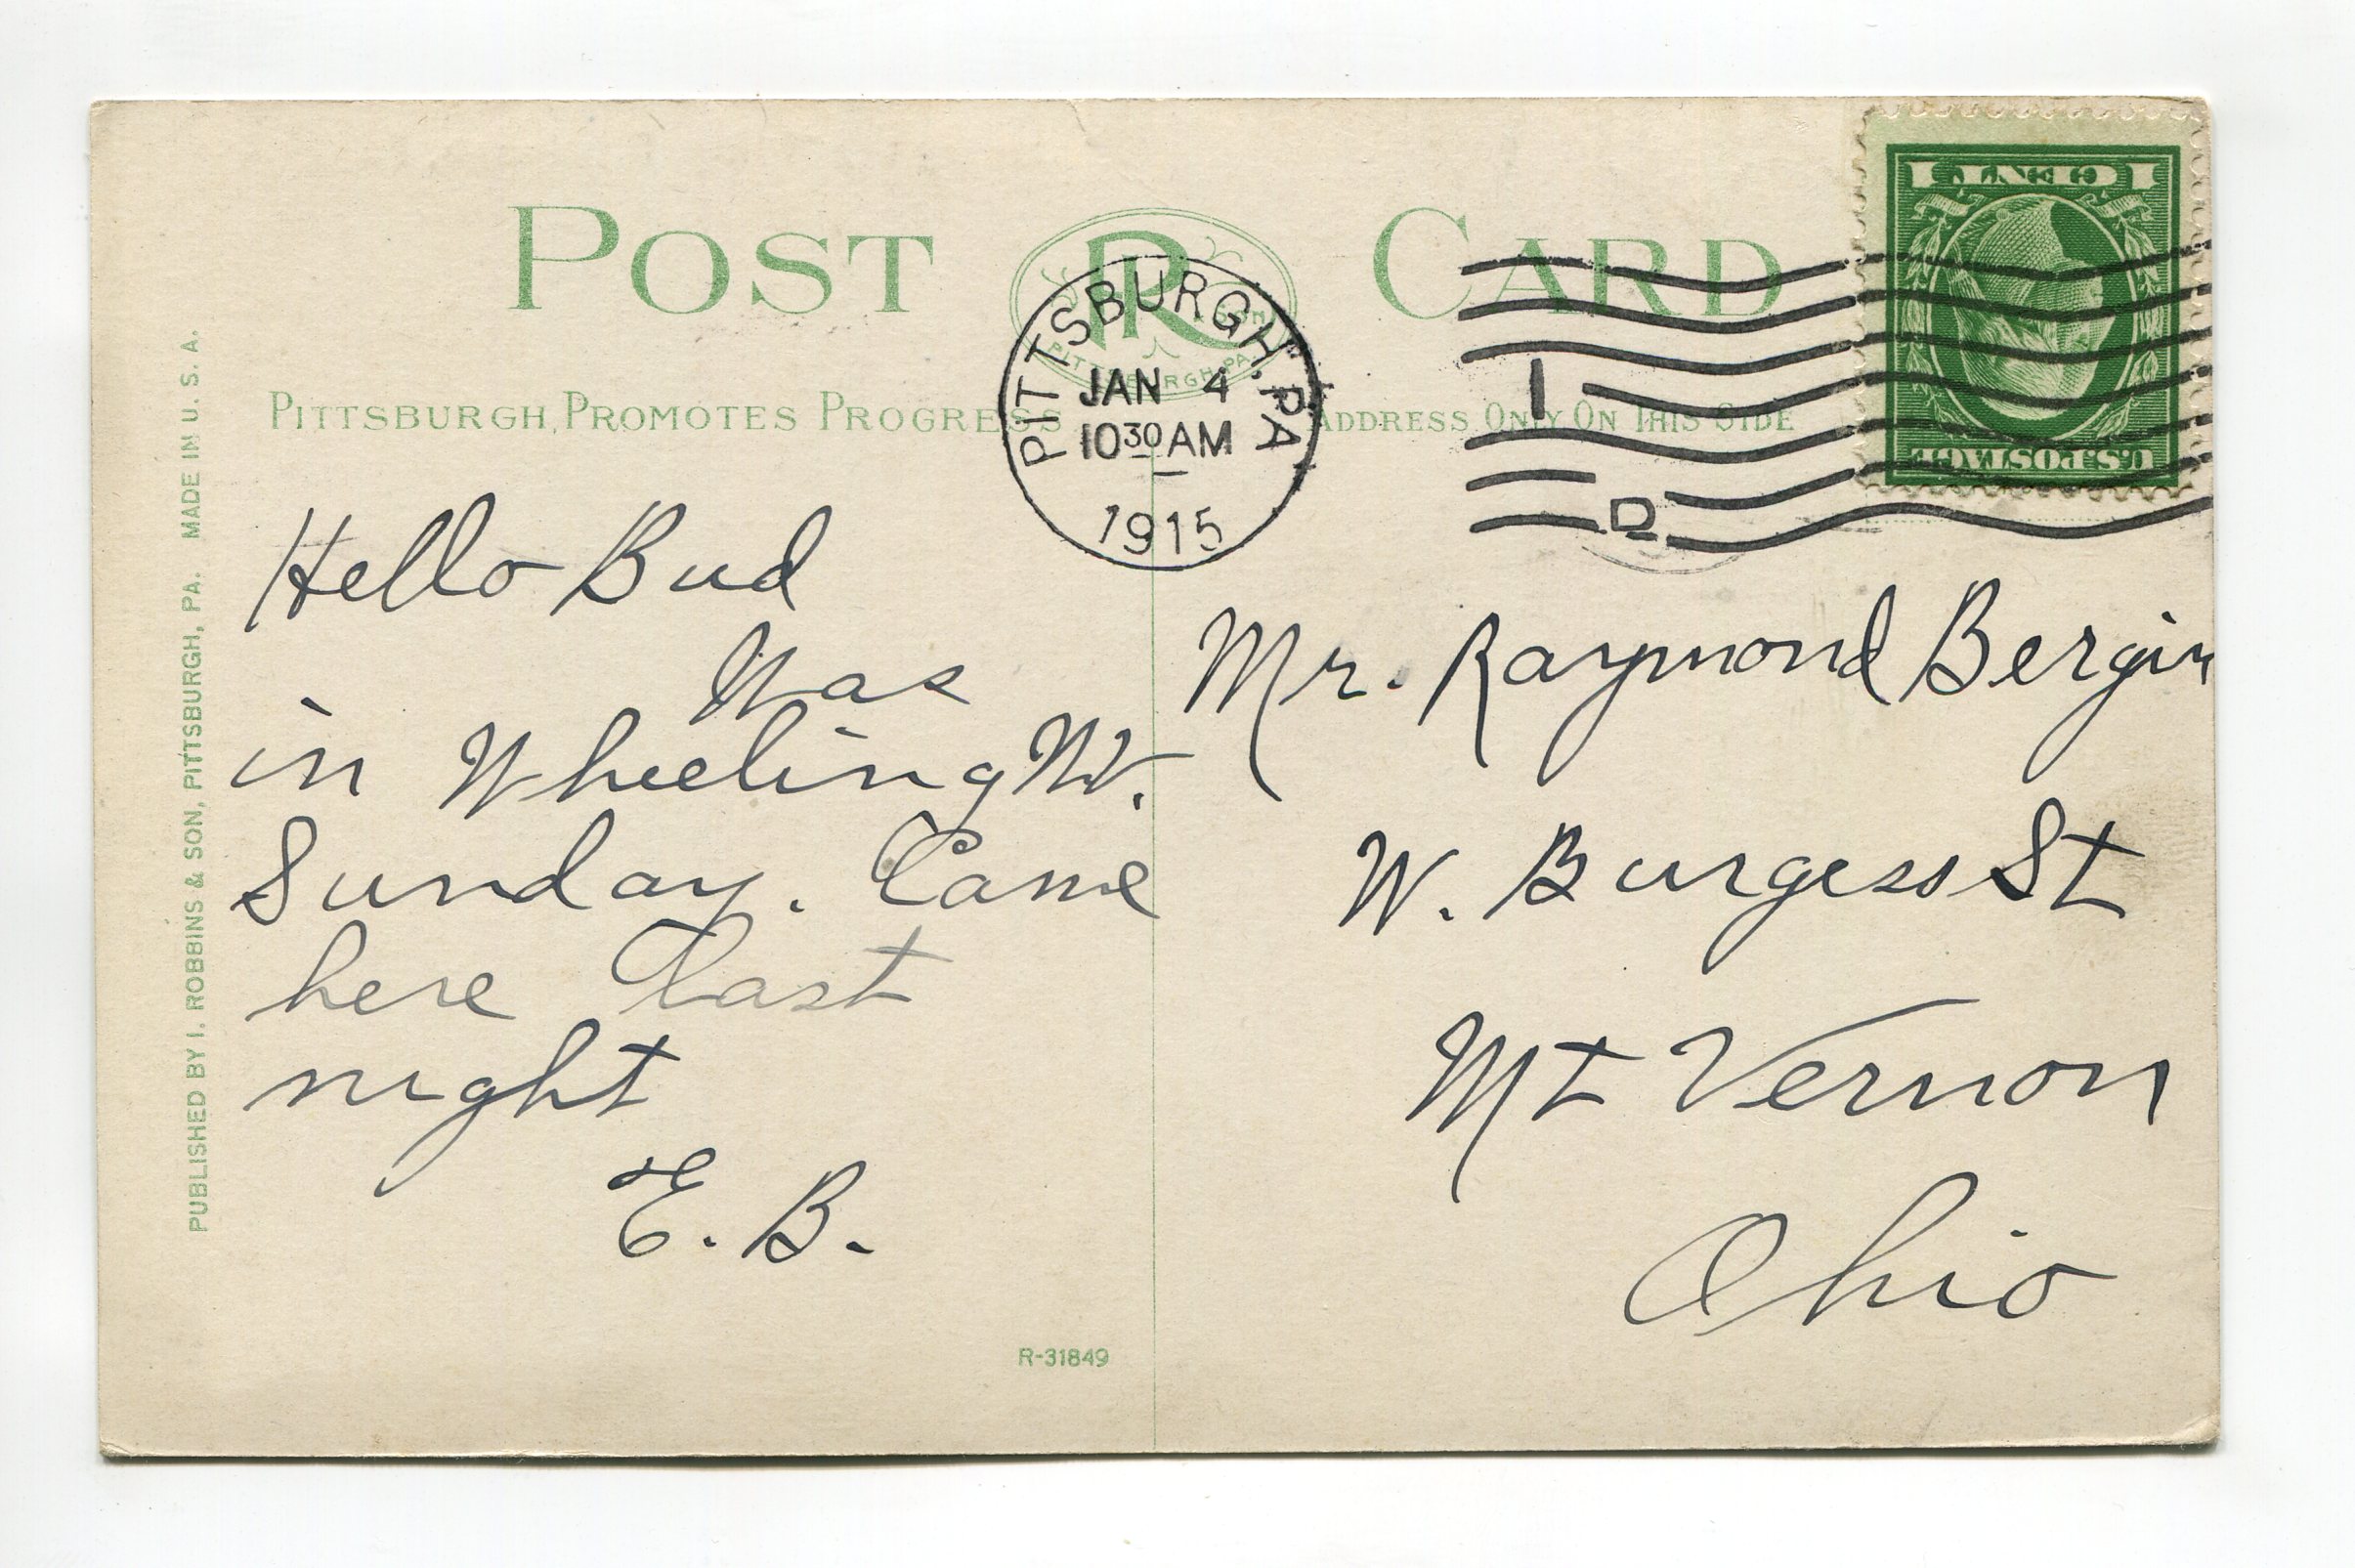 POST CARD
R
PITTSBURGH, PA.
PITTSBURGH PROMOTES PROGRESS
ADDRESS ONLY ON THIS SIDE
PITTSBURGH, PA
JAN 4
10 30 AM
1915
1
D
1 CENT 1
U.S. POSTAGE
Hello Bud
Was
in Wheeling W.V.
Sunday. Came
here last
night
E. B.
Mr. Raymond Bergin
W. Burgess St
Mt Vernon
Ohio
PUBLISHED BY I. ROBBINS & SON, PITTSBURGH, PA. MADE IN U. S. A.
R-31849